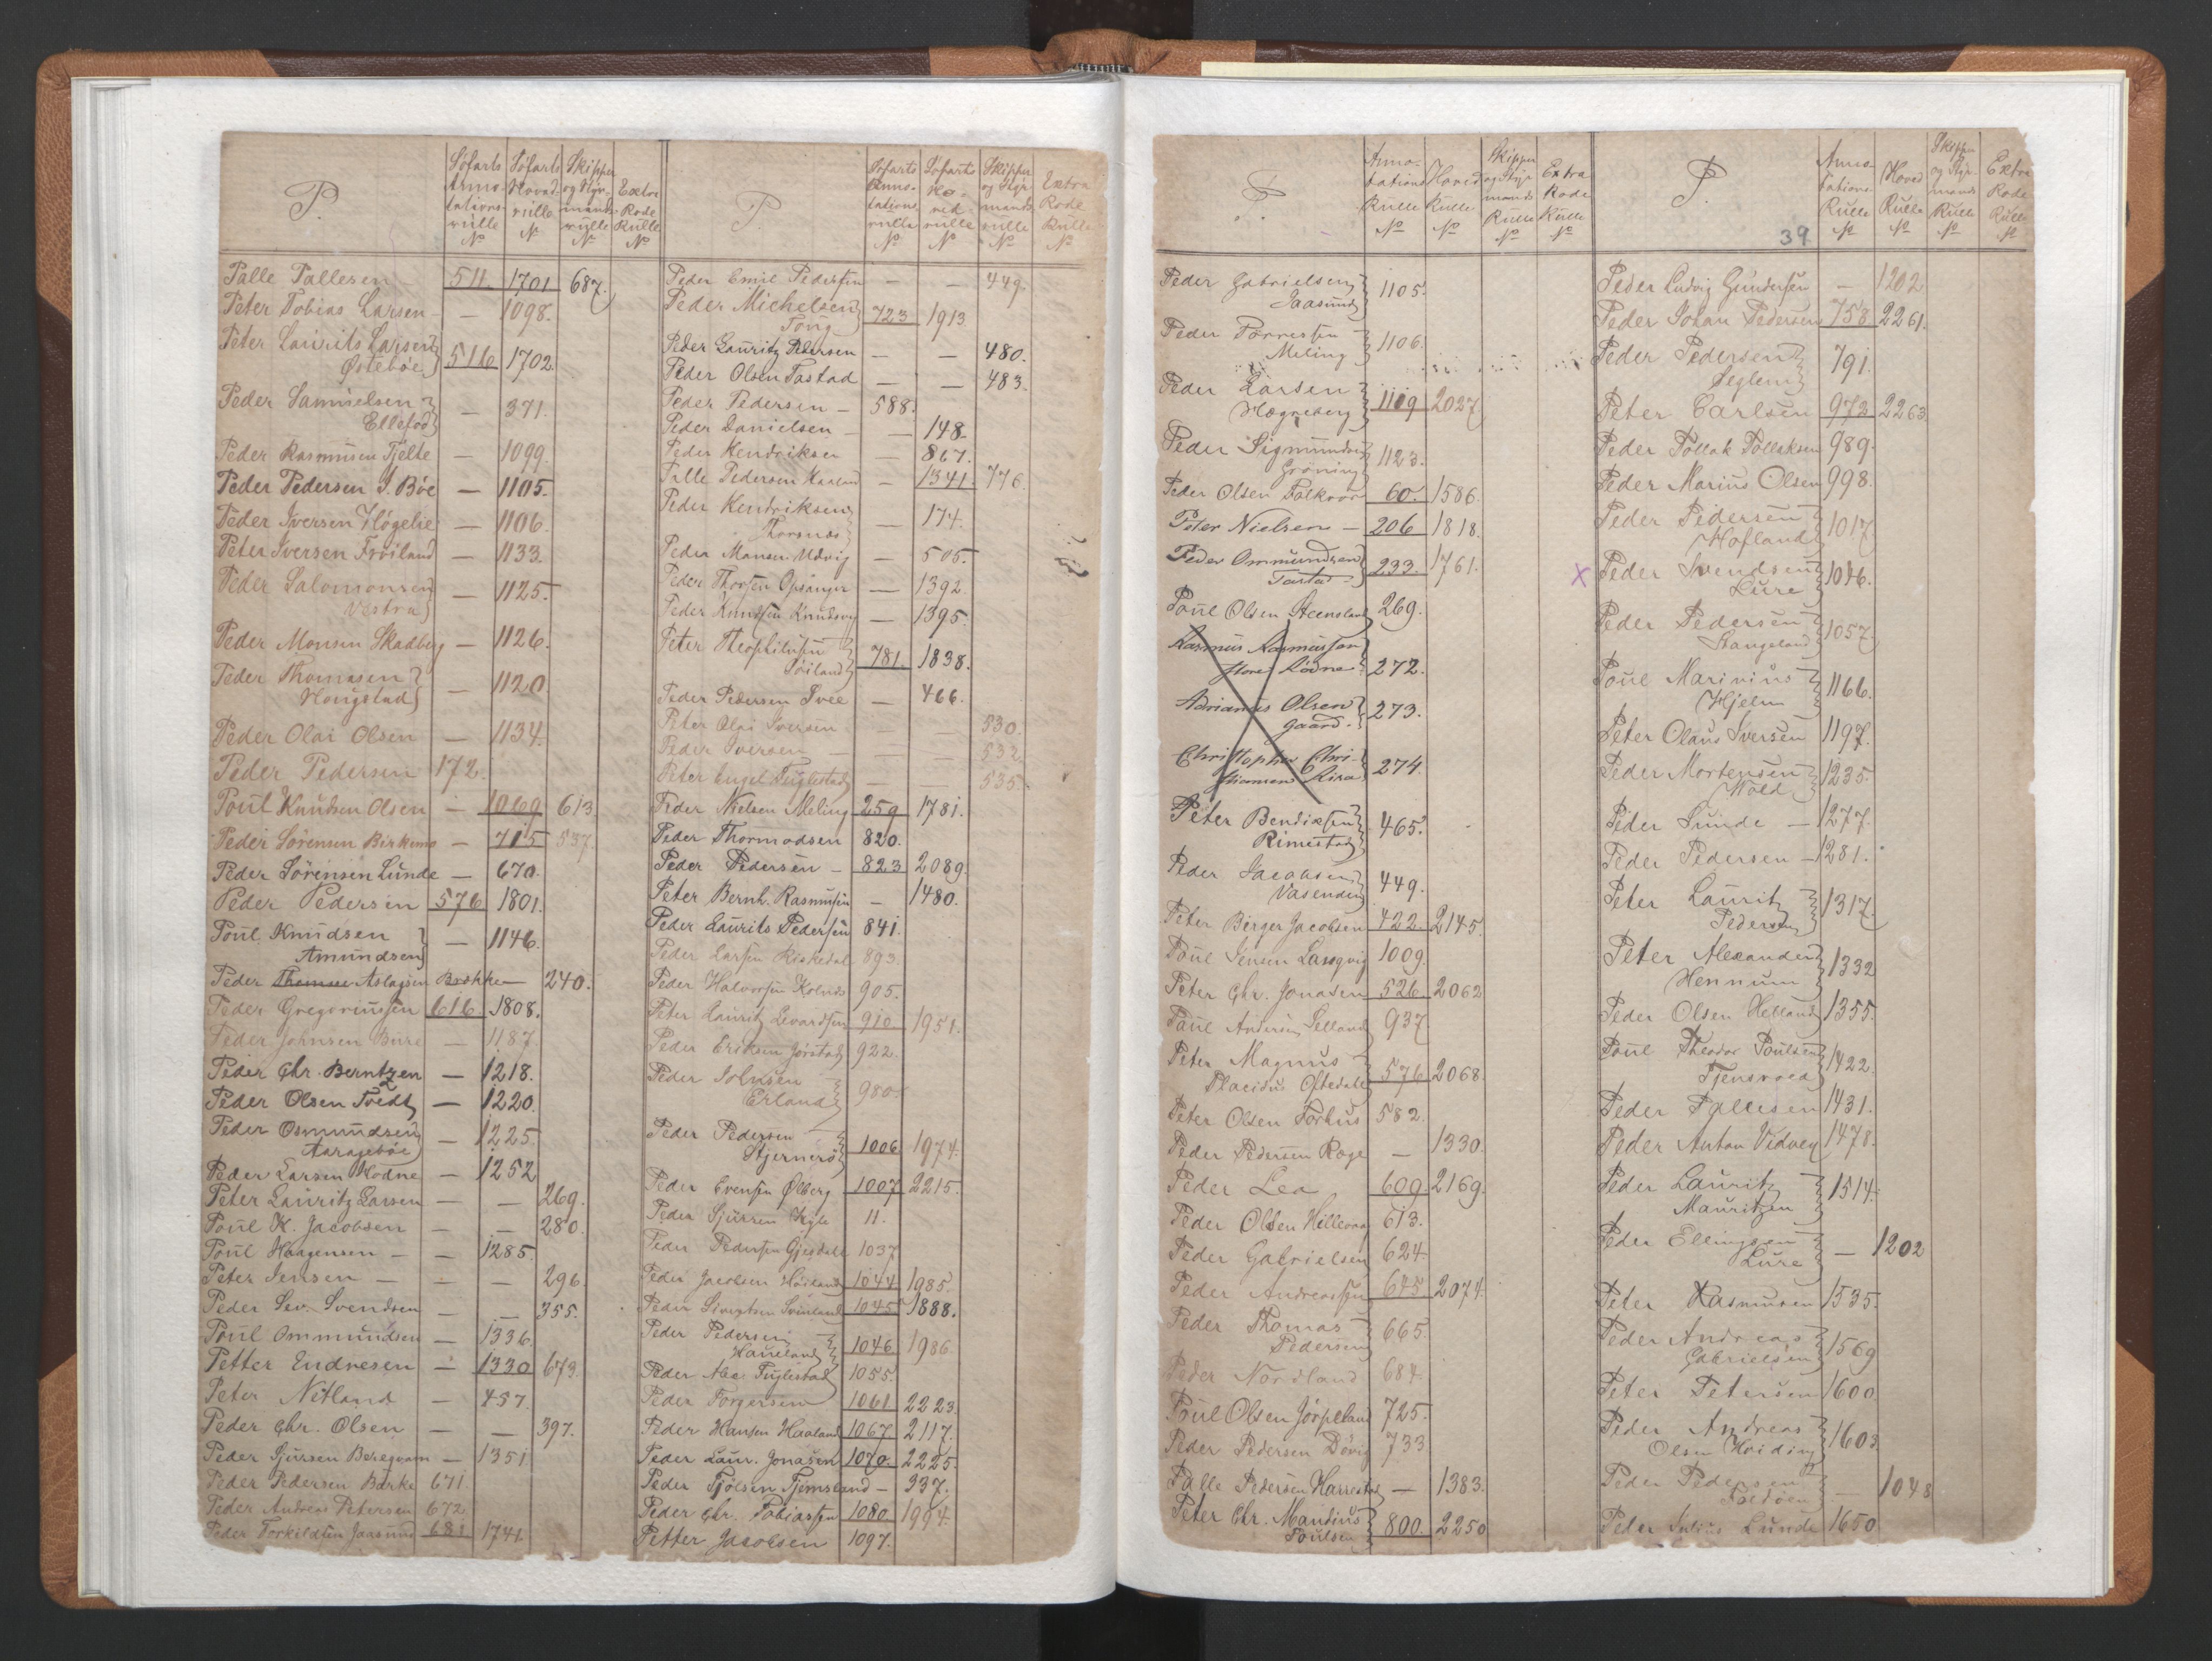 P.
Søfarts Anno- tations- rulle No
Søfarts Hoved- rulle No
Skipper og Styr- mands- rulle No
Extra Rode Rulle No
Palle Pallesen - 511. 1701 687.
Peter Tobias Larsen - — 1098.
Peter Laurits Larsen
Østebøe 516 1702
Peder Samuelsen
— 371.
Peder Rasmusen Tjelte — 1099.
Peder Pedersen S. Bøe — 1105.
Peder Iversen — 1106.
Peter Iversen Frøiland — 1133.
Peder Salomonsen
Vestra — 1125.
Peder Monsen Skadberg — 1126.
Peder Thomasen
Hougstad — 1120.
Peder Olai Olsen — 1134.
Peder Pedersen 172.
Poul Knudsen Olsen — 1069 613
Peder Sørensen Birkemo — 715 537
Peder Sørensen Lunde — 670.
Peder Pedersen 576 1801.
Poul Knudsen
Amundsen — 1146.
Peder Aslagsen — 240.
Peder Gregoriussen 616 1808.
Peder Johnsen Bore — 1187
Peder Chr. Berntzen — 1218.
Peder Olsen Tvedt — 1220.
Peder Osmundsen
Aaragebøe — 1225.
Peder Larsen Hodne — 1252
Peter Lauritz Larsen — — 269.
Poul K. Jacobsen — — 280.
Poul Haagensen — — 1285
Peter Jensen — — — 296
Peder Sev. Svendsen — — 355.
Poul Ommundsen — 1336.
Petter Endresen — 1330 673.
Peter Netland — 457.
Peder Chr. Olsen — — 397.
Peder Sjursen — 1351
Peder Pedersen Barke 671.
Peder Andreas Petersen 672
Peder Torkildsen Jaasund 681 1741.
P.
Søfarts Anno- tations rulle No
Søfarts Ho- ved- rulle No
Skipper og Styr- mands rulle No
Extra Rode Rulle No
Peder Emil Pedersen — — 449.
Peder Michelsen
Tong 723 1913
Peder Lauritz Pedersen — — 480.
Peder Olsen Tastad — — 483.
Peder Pedersen — 588.
Peder Danielsen — — 148.
Peder Hendriksen — 867.
Palle Pedersen Haaland — 1341. 776.
Peder Hendriksen
Thorsnes — 174.
Peder Monsen — 505.
Peder Thorsen Opsanger — 1392
Peder Knudsen — 1395.
Peter Theophilusen
Soiland 781. 1838.
Peder Pedersen Tvee — 466.
Peter Olai Iversen — — 530.
Peder Iversen — — — 532
Peter Engel Fuglestad — — 535.
Peder Nielsen Meling 259 1781.
Peder Thormodsen 820.
Peder Pedersen — 823 2089.
Peter Bernh. Rasmusen — 1480.
Peder Laurits Pedersen 841.
Peder Larsen 893.
Peder Halvorsen 905.
Peter Lauritz 910 1951.
Peder Eriksen Jørstad 922.
Peder Johnsen
Erland 980.
Peder Pedersen
Stjernerø 1006 1974.
Peder Evensen Ølberg 1007 2215.
Peder Sjursen 11.
Peder Pedersen Gjesdale 1037
Peder Jacobsen 1044 1985.
Peder Sivertsen 1045 1888.
Peder Pedersen
Haueland 1046 1986.
Peder Fuglestad 1055.
Peder Torgersen 1061 2223.
Peder Hansen Haaland 1067 2117.
Peder Laur. Jonasen 1070. 2225.
Peder Tjølsen Tjemsland — 337.
Peder Chr. Tobiassen 1080 1994.
Petter Jacobsen 1097.
P.
Anno- tations Rulle No
Hoved Rulle No
Skipper og Styr mands Rulle No
Extra Rode Rulle No
Peder Gabrielsen
Jaasund 1105.
Peder Torressen
Meling 1106.
Peder Larsen
Hægreberg 1119 2027
Peder Sigmundsen
Grøning 1123.
Peder Olsen Falkvor 60. 1586.
Peter Nielsen — 206 1818.
Peder Ommundsen
Tastad 233. 1761.
Poul Olsen Steensland 269.
Rasmus Rasmussen
store Rødne 272.
Adrianus Olsen
gaard. 273.
Christopher Chri-
stiansen 274.
Peter Bendixsen
Rimestad 465.
Peder Jacobsen
Vasenden 449.
Peter Birger Jacobsen 422. 2145
Poul Jensen 1009.
Peter Chr. Jonasen 526 2062
Paul Andersen Selland 937
Peter Magnus
Placidus Oftedal 576 2068.
Peter Olsen Forhus 582.
Peder Pedersen Røge — 1330.
Peder Lea 609 2169.
Peder Olsen Hillevaag 613.
Peder Gabrielsen 624.
Peder Andreassen 645. 2074.
Peder Thomas
Pedersen 665.
Peder Nordland 684
Poul Olsen Jørpeland 725.
Peder Pedersen 733.
Palle Pedersen Harrestad — 1383.
Peter Chr. Mandius
Poulsen 800. 2250
P.
39
Anno- tations Rulle No
Hoved Rulle No
Skipper og Styr- mands Rulle No
Extra Rode Rulle No
Peder Ludvig Gundersen — 1202
Peder Johan Pedersen 758 2261.
Peder Pedersen
Seglem 791.
Peter Carlsen 972 2263
Peder Tollak Tollaksen 989.
Peder Marius Olsen 998.
Peder Pedersen
Hofland 1017
x Peder Svendsen
Lure 1046.
Peder Pedersen
Stangeland 1057
Poul Marinius
Hjelm 1166.
Peter Olaus Iversen 1197.
Peder Mortensen
Wold 1235.
Peder Lunde — 1277.
Peder Pedersen — 1281.
Peter Lauritz
Pedersen 1317.
Peter Alexander
Hennum 1332
Peder Olsen Helland 1355.
Poul Theodor Poulsen
Tjensvold 1422.
Peder Pallesen 1431.
Peder Anton Vidvey 1478.
Peder Lauritz
Mauritzen 1514.
Peder Ellingsen
Lure — 1202
Peter Rasmusen 1535.
Peder Andreas
Gabrielsen 1569
Peter Petersen 1600
Peder Andreas
Olsen Hoiding 1603
Peder Pedersen
— 1048
Peder Julius Lunde 1650